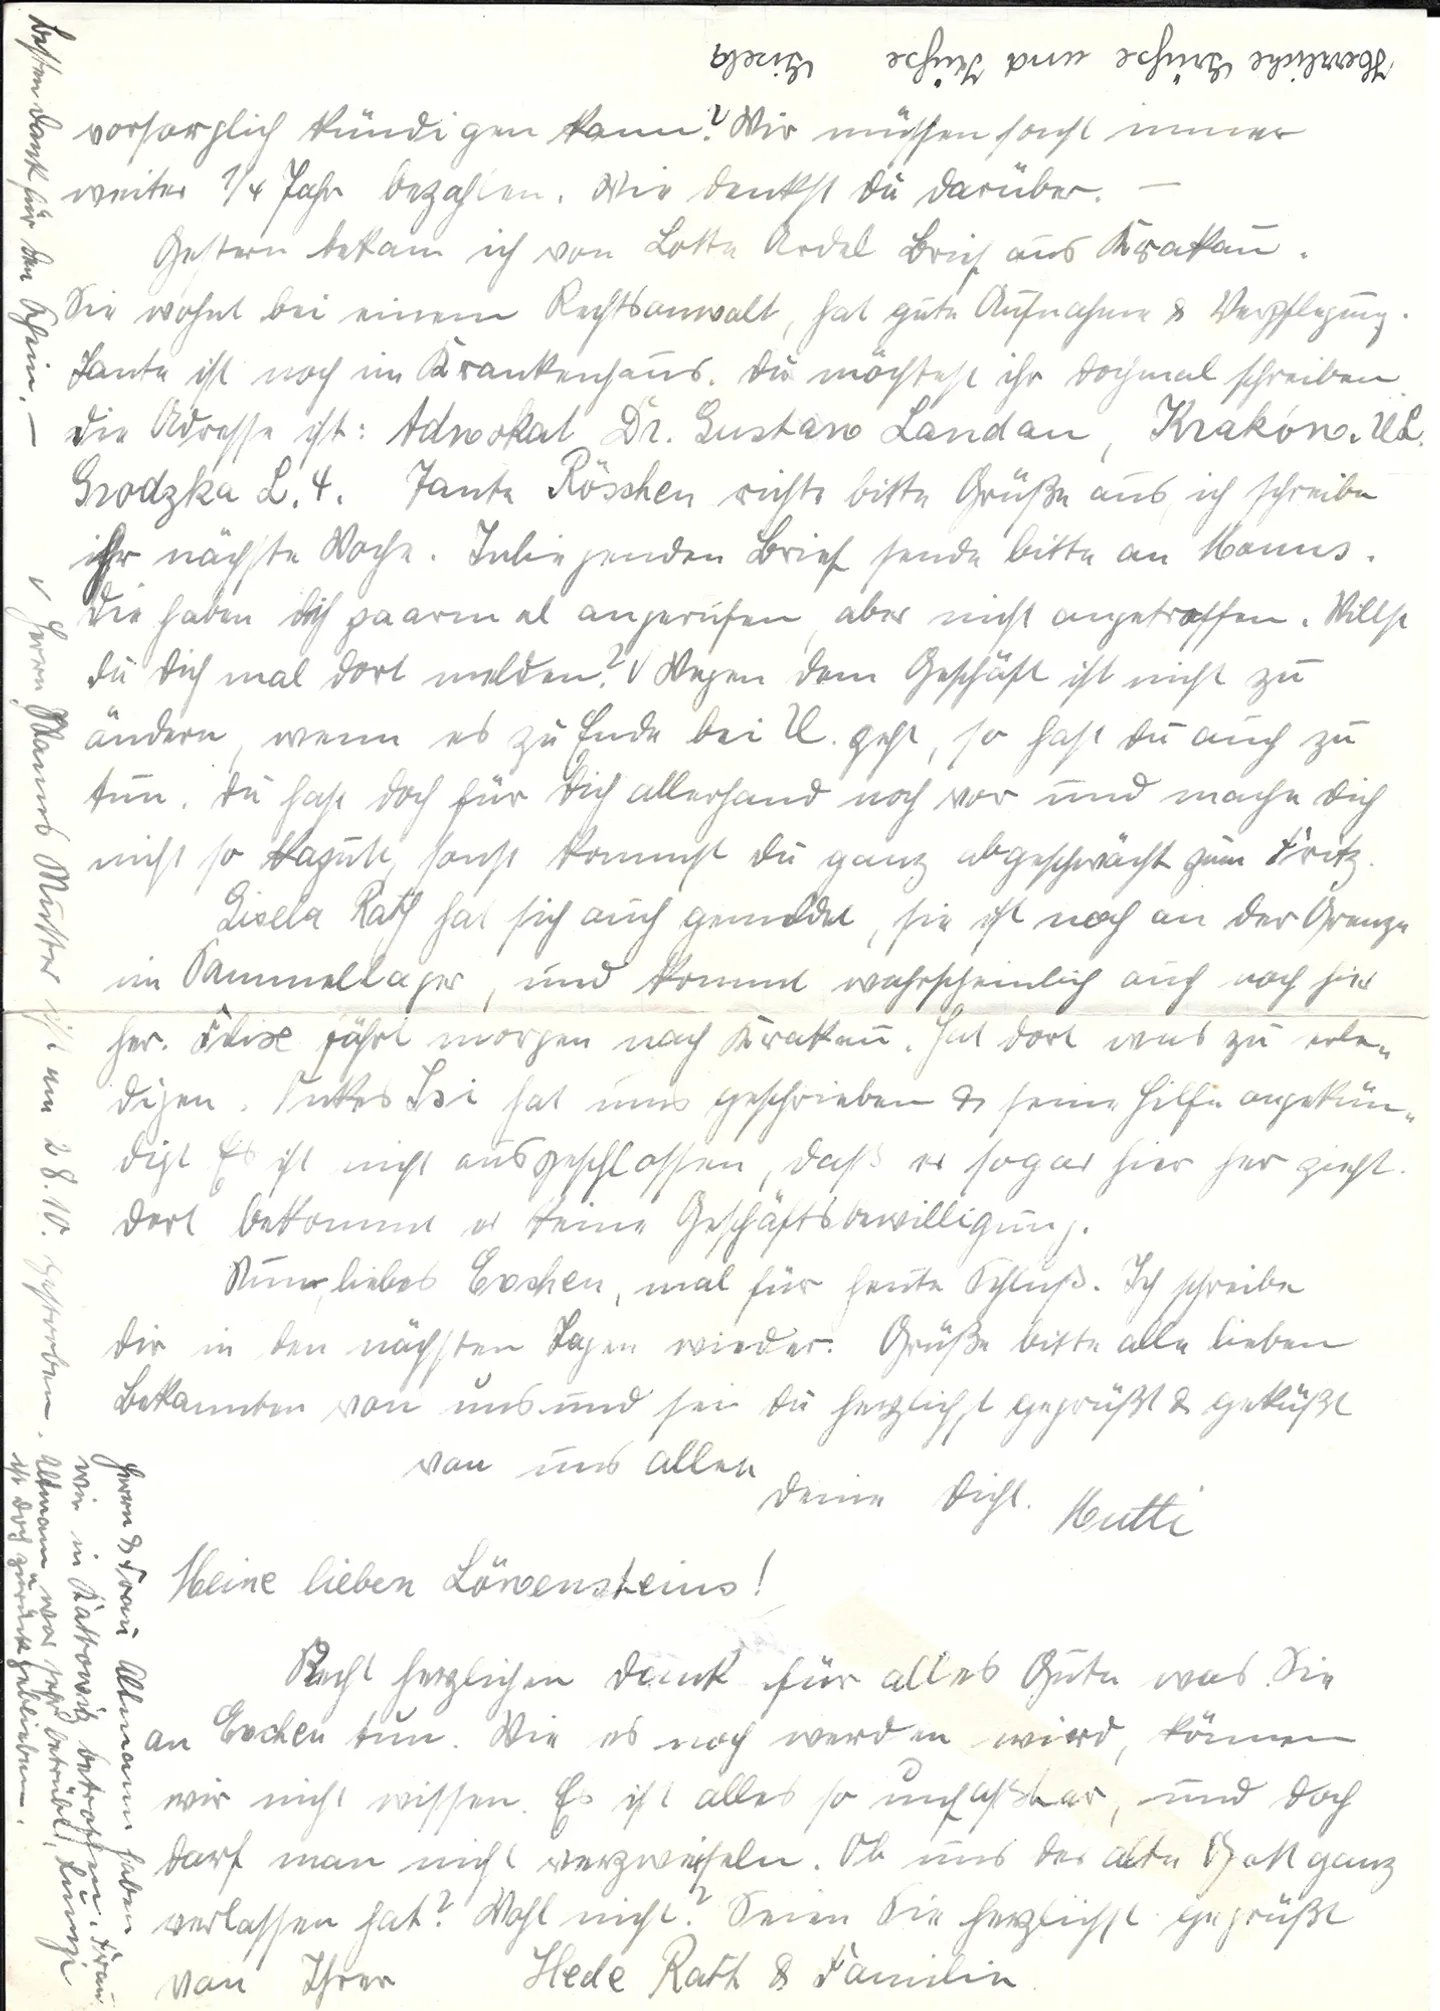 Herzliche Grüße und Küße Gisela
vorsorglich kündigen kann? Wir müssen sonst immer
weiter 1/4 Jahr bezahlen. Wie denkst Du darüber. —
Gestern bekam ich von Lotte Ardel Brief aus Krakau.
Sie wohnt bei einem Rechtsanwalt, hat gute Aufnahme & Verpflegung.
Tante ist noch im Krankenhaus. Du möchtest ihr dochmal schreiben
die Adresse ist: Adwokat Dr. Gustaw Landau, Kraków. Ul.
Grodzka L. 4. Tante Röschen richte bitte Grüße aus, ich schreibe
ihr nächste Woche. Inliegenden Brief sende bitte an Manns.
Die haben Dich paarmal angerufen, aber nicht angetroffen. Willst
Du Dich mal dort melden? √ Wegen dem Geschäft ist nicht zu
ändern, wenn es zu Ende bei U. geht, so hast Du auch zu
tun. Du hast doch für Dich allerhand noch vor und mache Dich
nicht so kaputt, sonst kommst Du ganz abgeschwächt zum Fritz.
Gisela Rath hat sich auch gemeldet, sie ist noch an der Grenze
im Sammellager, und kommt wahrscheinlich auch noch hier
her. Felix fährt morgen nach Krakau. Hat dort was zu erle-
digen. Onkel Isi hat uns geschrieben & seine Hilfe angekün-
digt Es ist nicht ausgeschlossen, daß er sogar hier her zieht.
Dort bekommt er keine Geschäftsbewilligung.
Nun, liebes Evchen, mal für heute Schluß. Ich schreibe
Dir in den nächsten Tagen wieder. Grüße bitte alle lieben
Bekannten von uns und sei Du herzlichst gegrüßt & geküßt
von uns allen
Deine Dicht. Mutti
Meine lieben Löwensteins!
Recht herzlichen Dank für alles Gute was Sie
an Evchen tun. Wie es noch werden wird, können
wir nicht wissen. Es ist alles so unfaßbar, und doch
darf man nicht verzweifeln. Ob uns der alte Gott ganz
verlassen hat? Wohl nicht? Seien Sie herzlichst gegrüßt
von Ihrer Hede Rath & Familie
Besten Dank für den Schein. —
√ Herrn Manns Mutter ist am 28.10. gestorben.
Herrn & Frau Altmann haben
wir in Kattowitz betroffen. Frau
Altmann war sehr betrübt,
ist doch zurück geblieben.